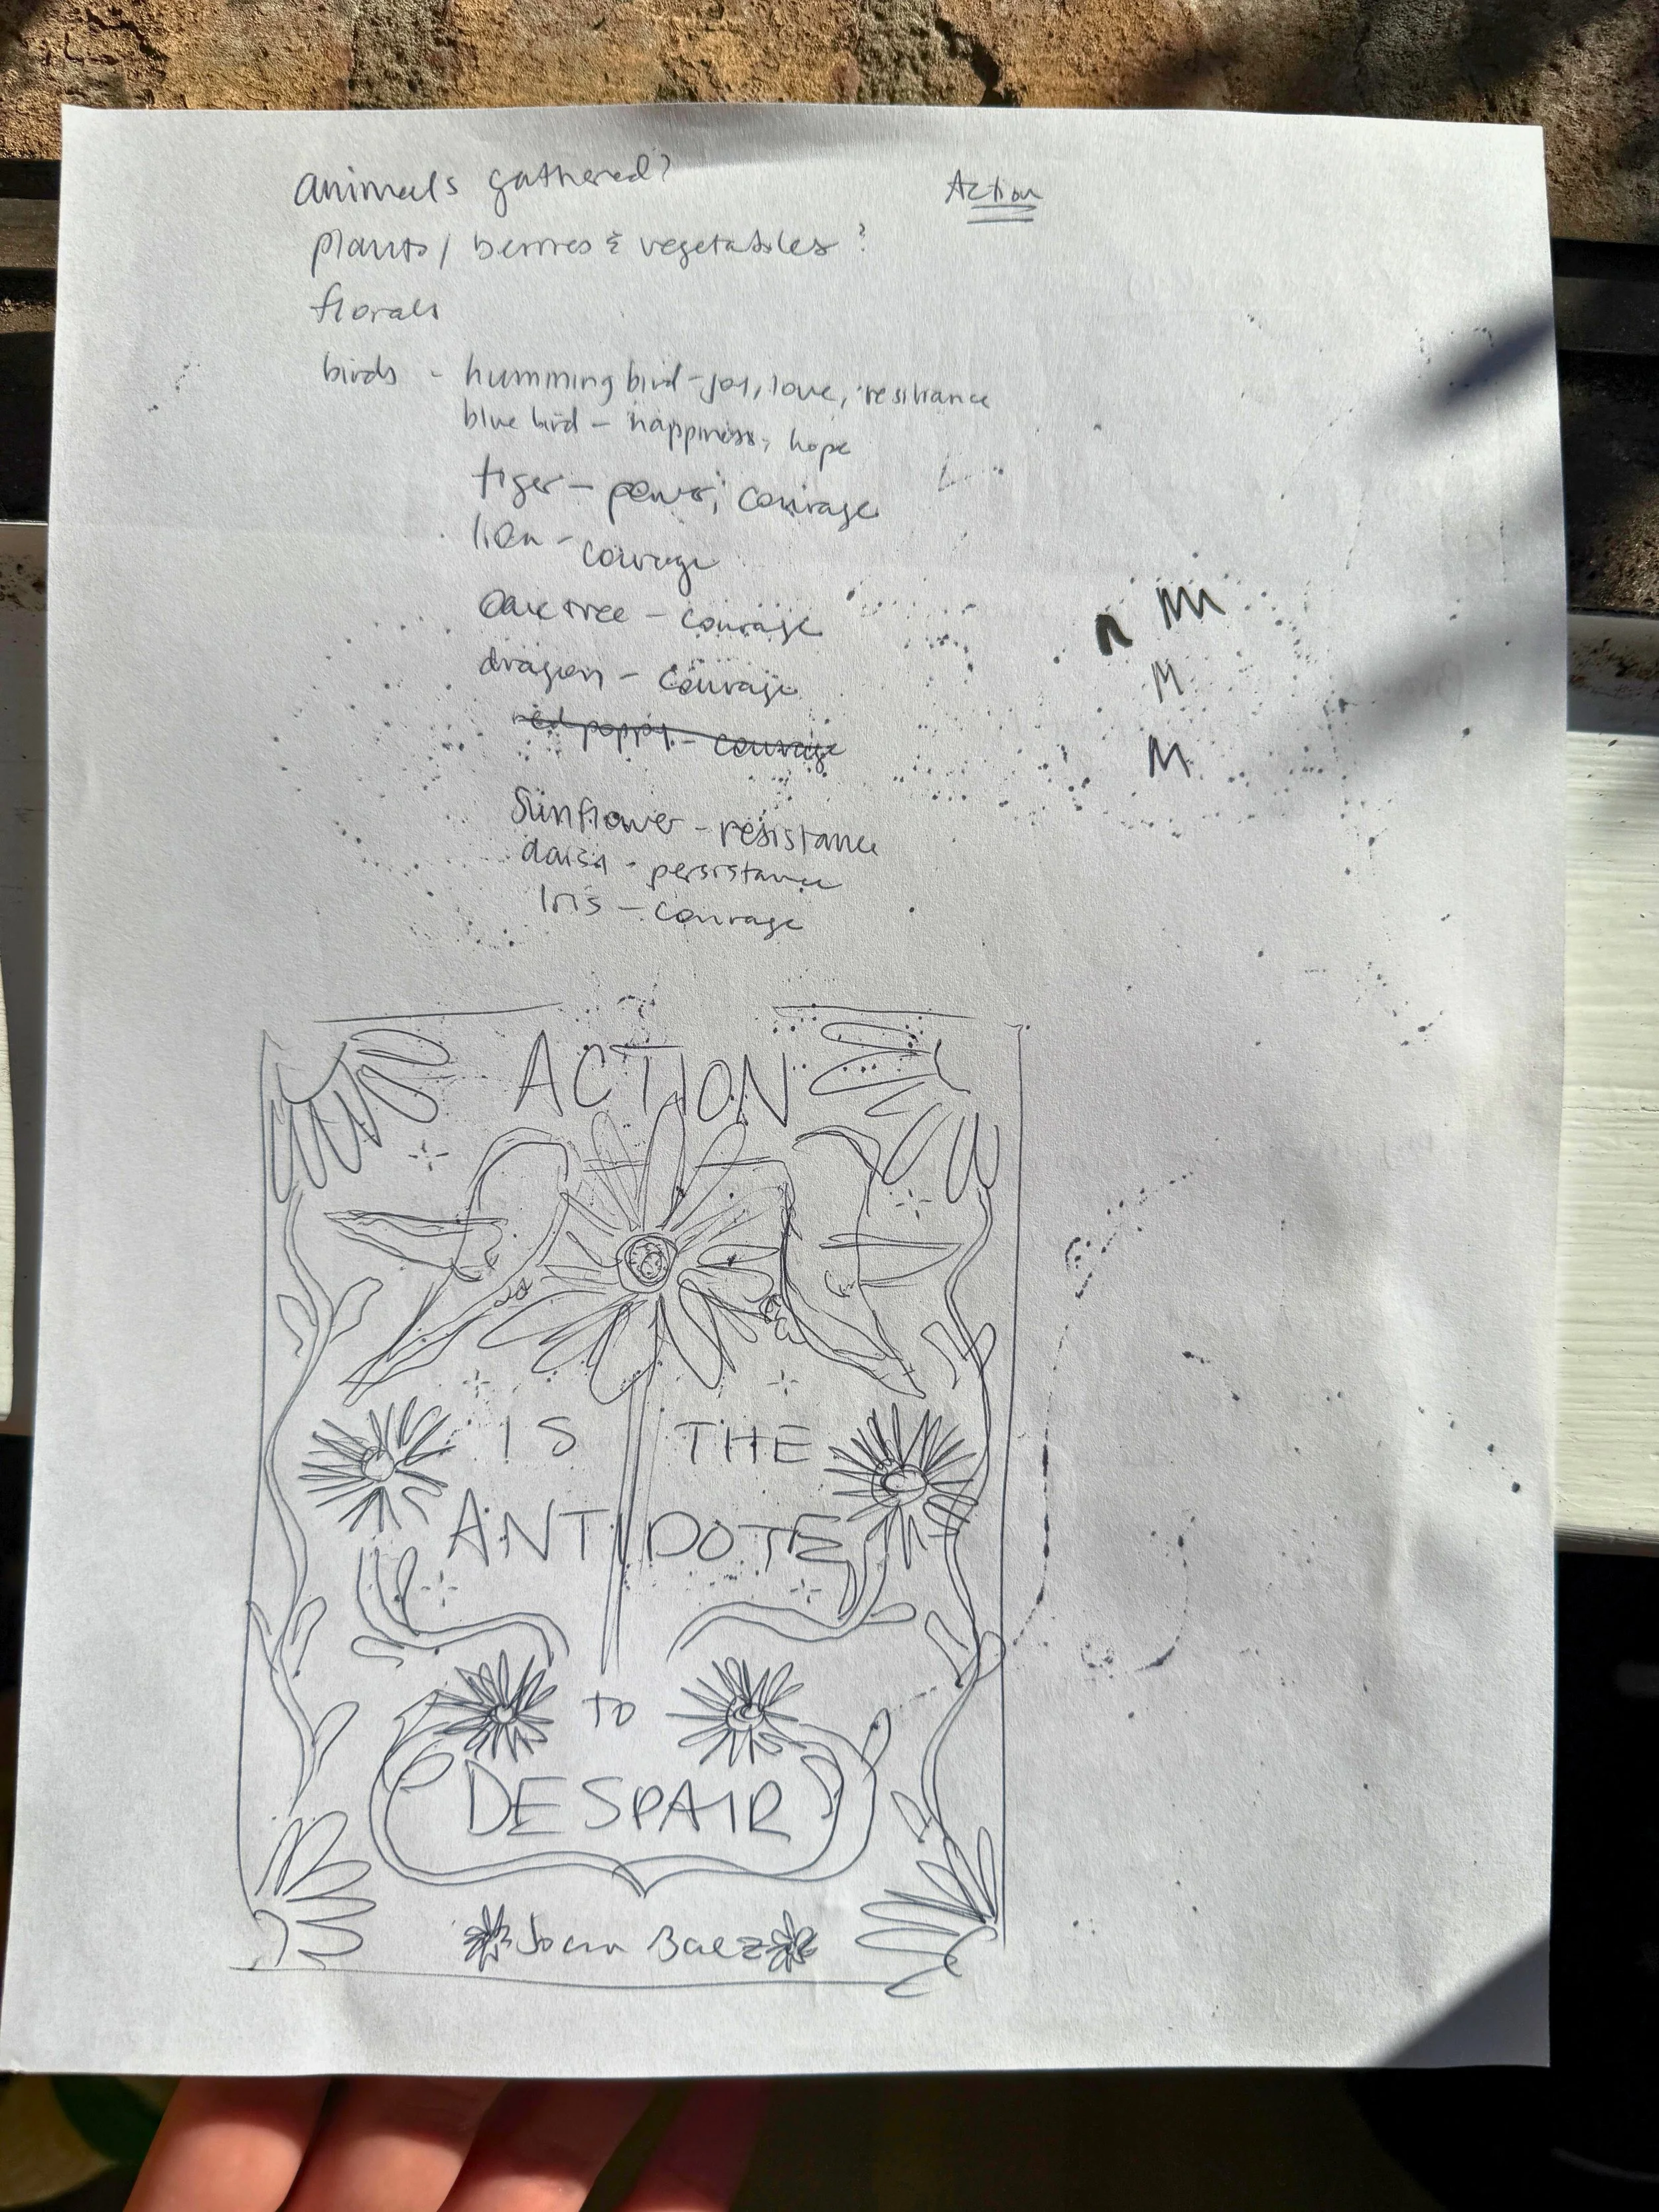 animals gathered?
Action
plants / berries & vegetables?
florals
birds - humming bird - joy, love, resiliance
blue bird - happiness, hope
tiger - power, courage
lion - courage
Oak tree - courage
dragon - courage
red poppy - courage
Sunflower - resistance
daisy - persistance
Iris - courage
n M
M
M
ACTION
IS THE
ANTIDOTE
TO
DESPAIR
Joan Baez